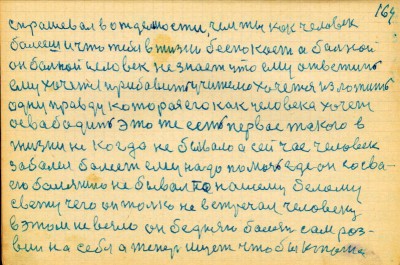 164
спрашевал в отдельности, чем ты как человек
болеш и что тебя в жизни беспокоет а больной
он больной человек не знает что ему ответить
ему хочется прибавить учителю хочется изложить
одну правду которая его как человека хочет
освабадить это же есть первое такого в
жизни не когда не бывало а сейчас человек
заболел болеет ему надо помочь где он со сва-
ею болячкою не бывал по нашему белому
свету чего он только не встречал человеку
в этом не везло он бедняга болячк сам роз-
вил на себя а теперь ищет чтобы кто